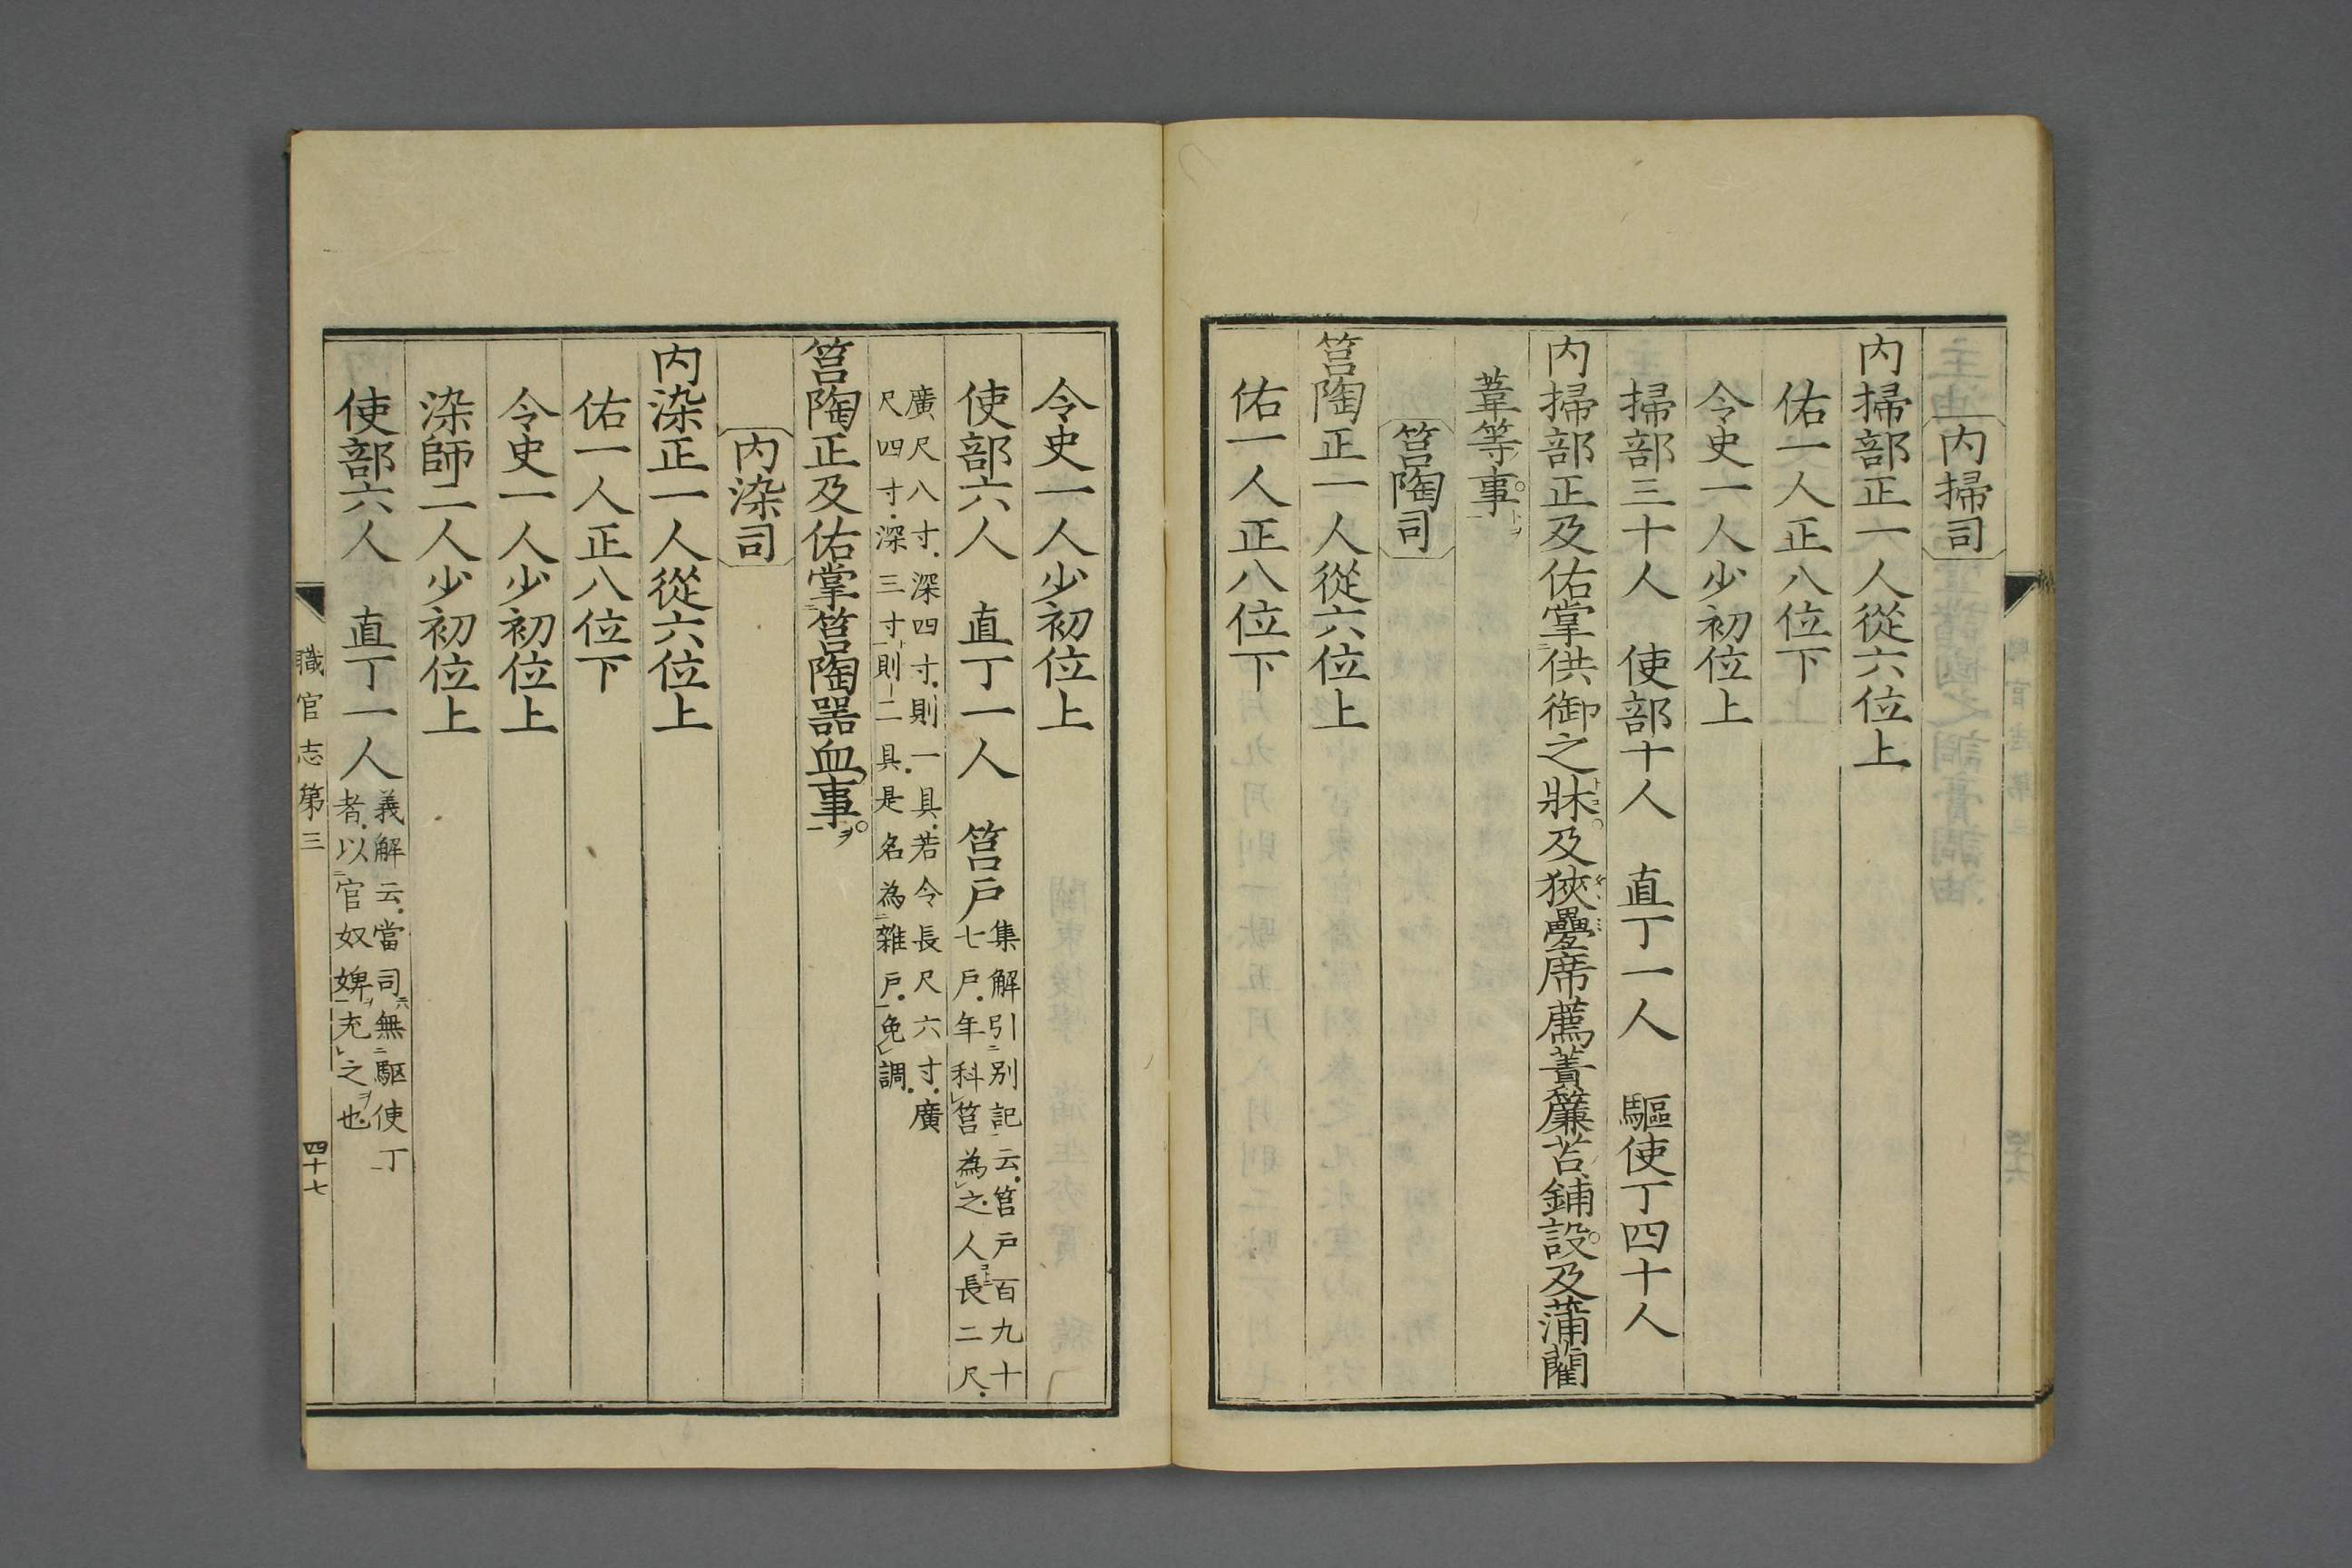 内掃司
内掃部正一人從六位上
佑一人正八位下
令史一人少初位上
掃部三十人　使部十人　直丁一人　駈使丁四十人
内掃部正及佑掌供御之牀及狹疊席薦簀簾苫鋪設及蒲藺
葦等事
筥陶司
筥陶正一人從六位上
佑一人正八位下
令史一人少初位上
使部六人　直丁一人　筥戶
集解引別記云筥戶百九十
七戶年科筥為之人長二尺
廣尺八寸深四寸則一具若令長尺六寸廣
尺四寸深三寸則二具是名為雜戶免調
筥陶正及佑掌筥陶器皿事
内染司
内染正一人從六位上
佑一人正八位下
令史一人少初位上
染師二人少初位上
使部六人　直丁一人
義解云當司無駈使丁
者以官奴婢充之也
職官志第三
四十七